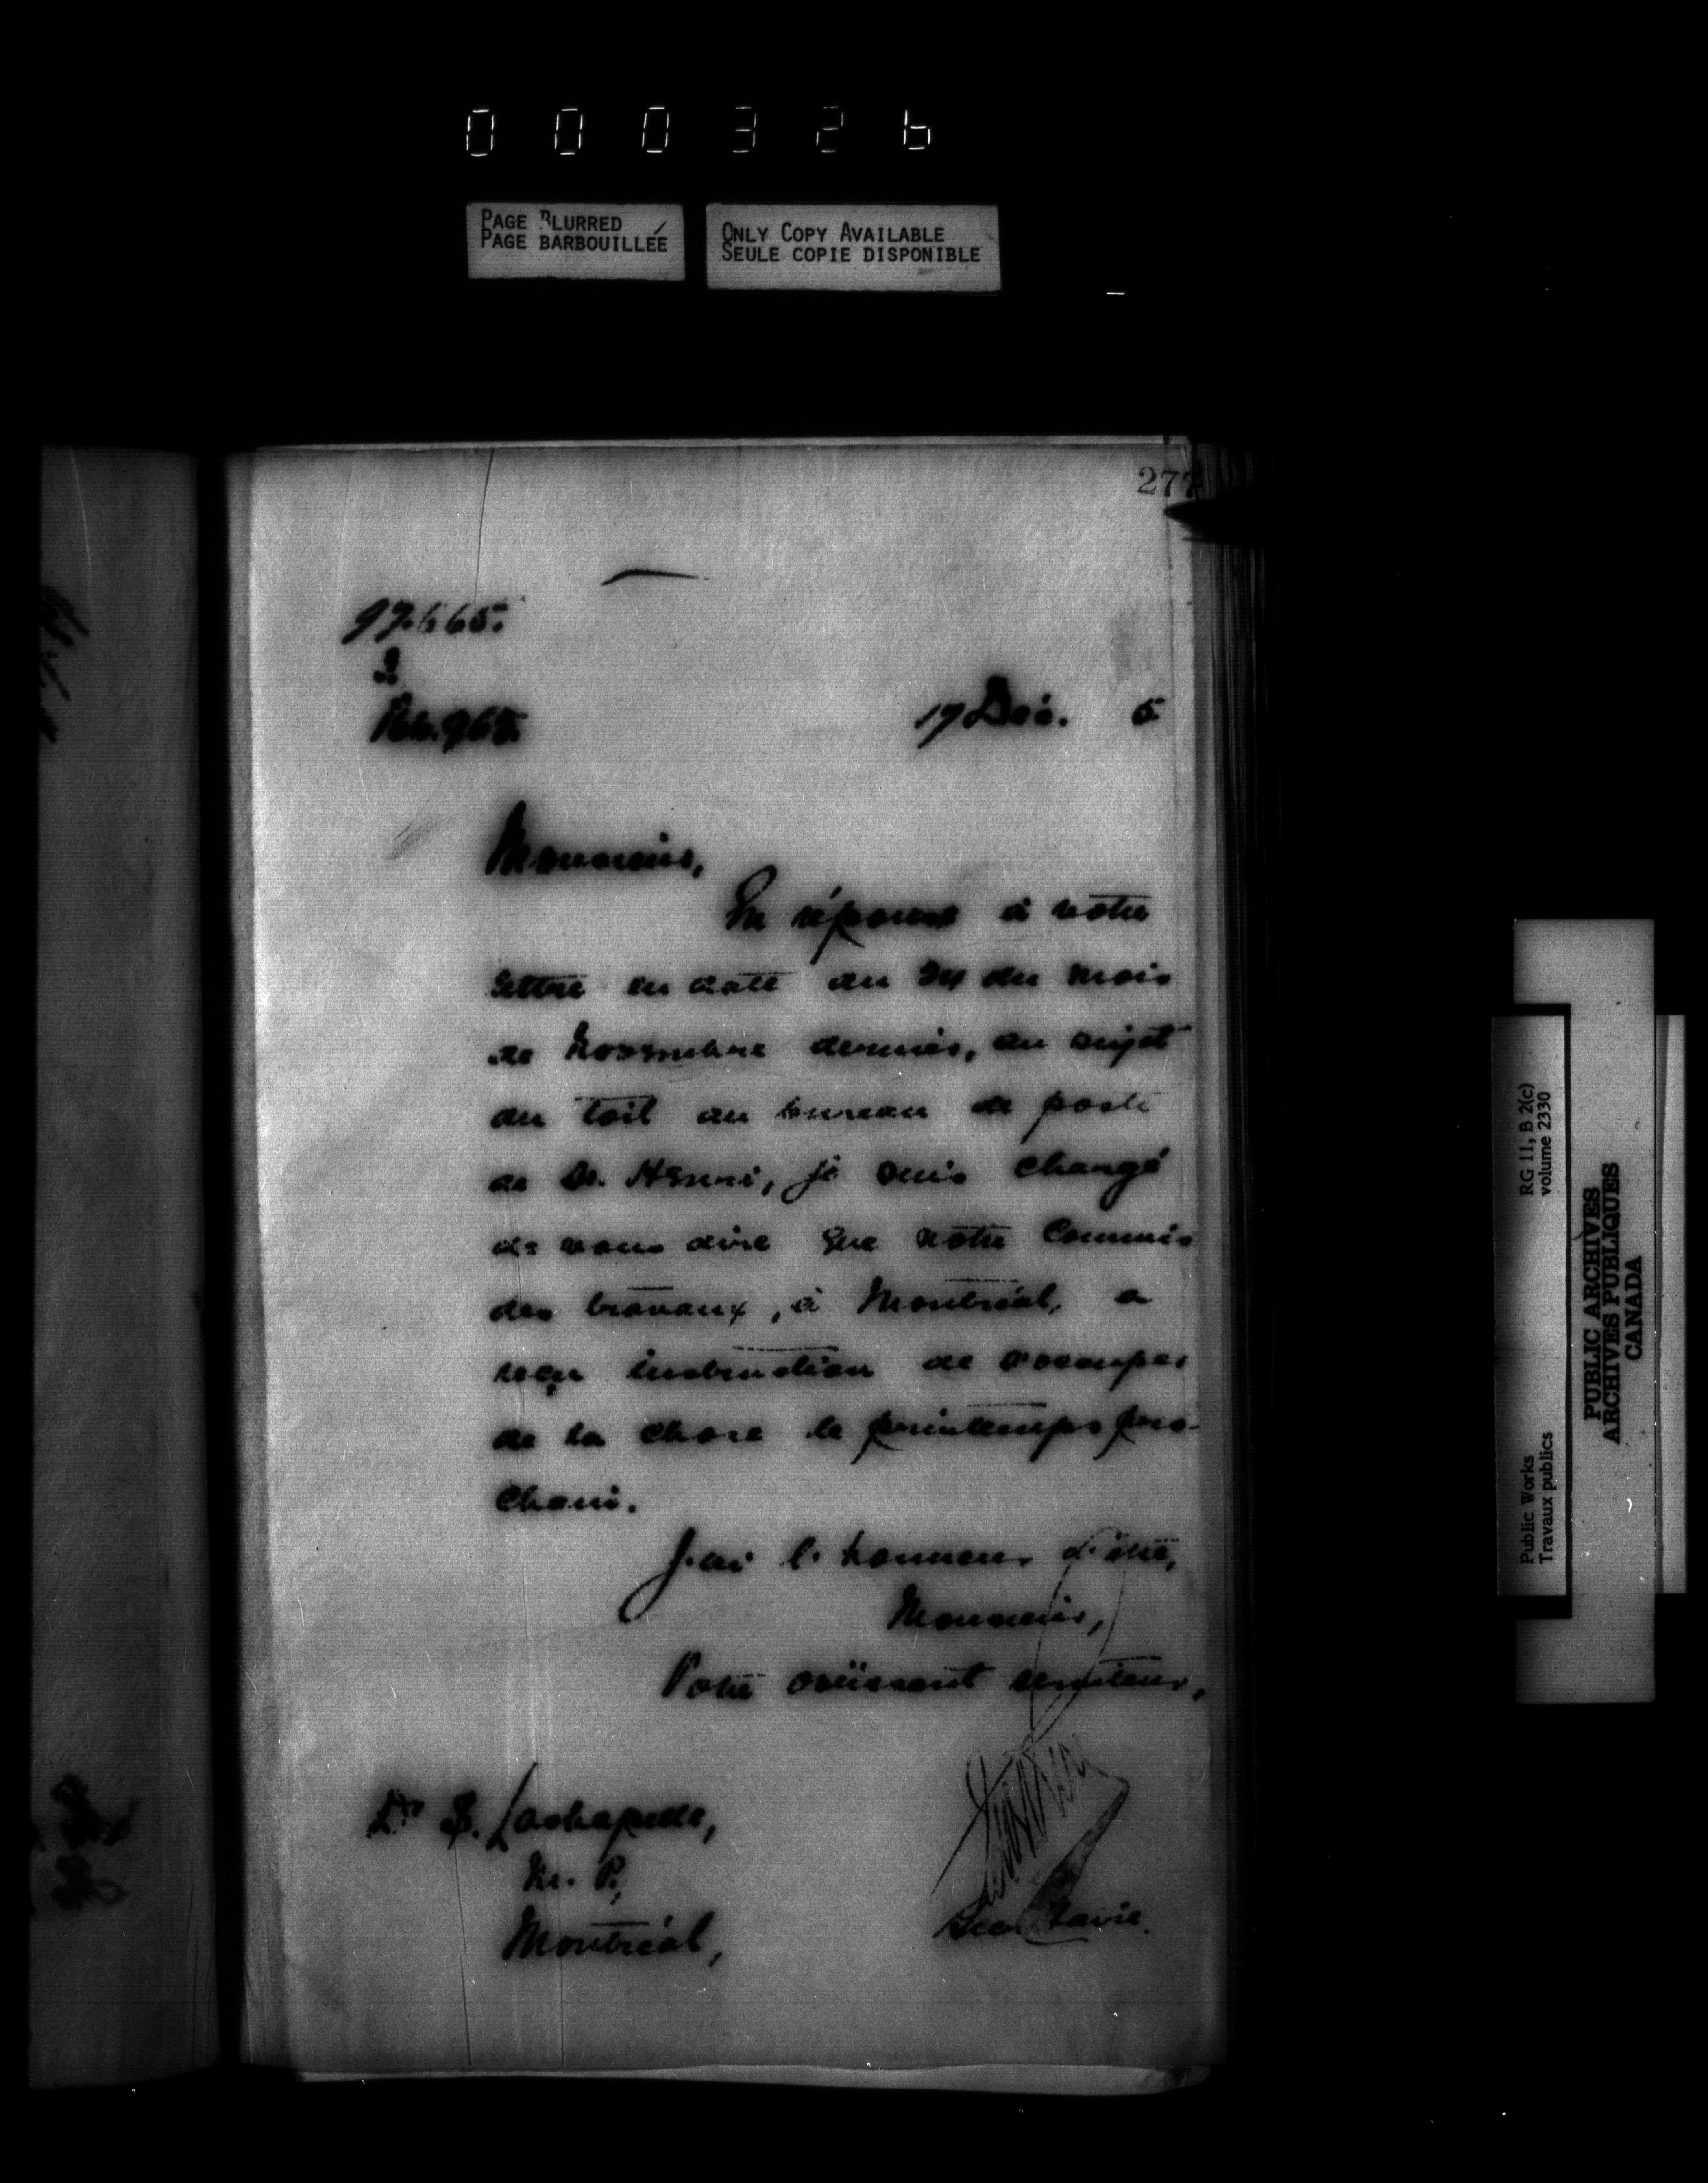 000326
PAGE BLURRED
PAGE BARBOUILLÉE
ONLY COPY AVAILABLE
SEULE COPIE DISPONIBLE
277
17 Déc. 5
Monsieur,
En réponse à votre
lettre en date du du mois
de Novembre dernier, au sujet
du toit du bureau de poste
de St. Henri, je suis chargé
de vous dire que notre Commis
des travaux, à Montréal, a
reçu instruction de s'occuper
de la chose le printemps pro-
chain.
J'ai l'honneur d'être,
Monsieur,
Votre obéissant serviteur,
Dr Lachapelle,
M. P.,
Montréal,
Secrétaire.
RG 11, B 2(c)
volume 2330
Public Works
Travaux publics
PUBLIC ARCHIVES
ARCHIVES PUBLIQUES
CANADA